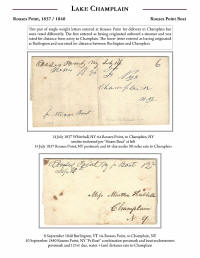 LAKE CHAMPLAIN
Rouses Point, 1837 / 1840
Rouses Point Boat
This pair of single-weight letters entered at Rouses Point for delivery in Champlain but
were rated differently. The first entered as having originated onboard a steamer and was
rated for distance from entry to Champlain. The lower letter entered as having originated
at Burlington and was rated for distance between Burlington and Champlain.
6
Champlain
N.Y.
pr Steam Boat
14 July 1837 Whitehall, NY via Rouses Point, to Champlain, NY
sender endorsed per "Steam Boat" at left
14 July 1837 Rouses Point, NY postmark and 6¢ due under 30 miles rate to Champlain
Rouses Point
Miss
Champlain
N.Y.
8 September 1840 Burlington, VT via Rouses Point, to Champlain, NY
10 September 1840 Rouses Point, NY "Pr Boat" combination postmark and boat endorsement
postmark and 12½¢ due, water + land distance rate to Champlain